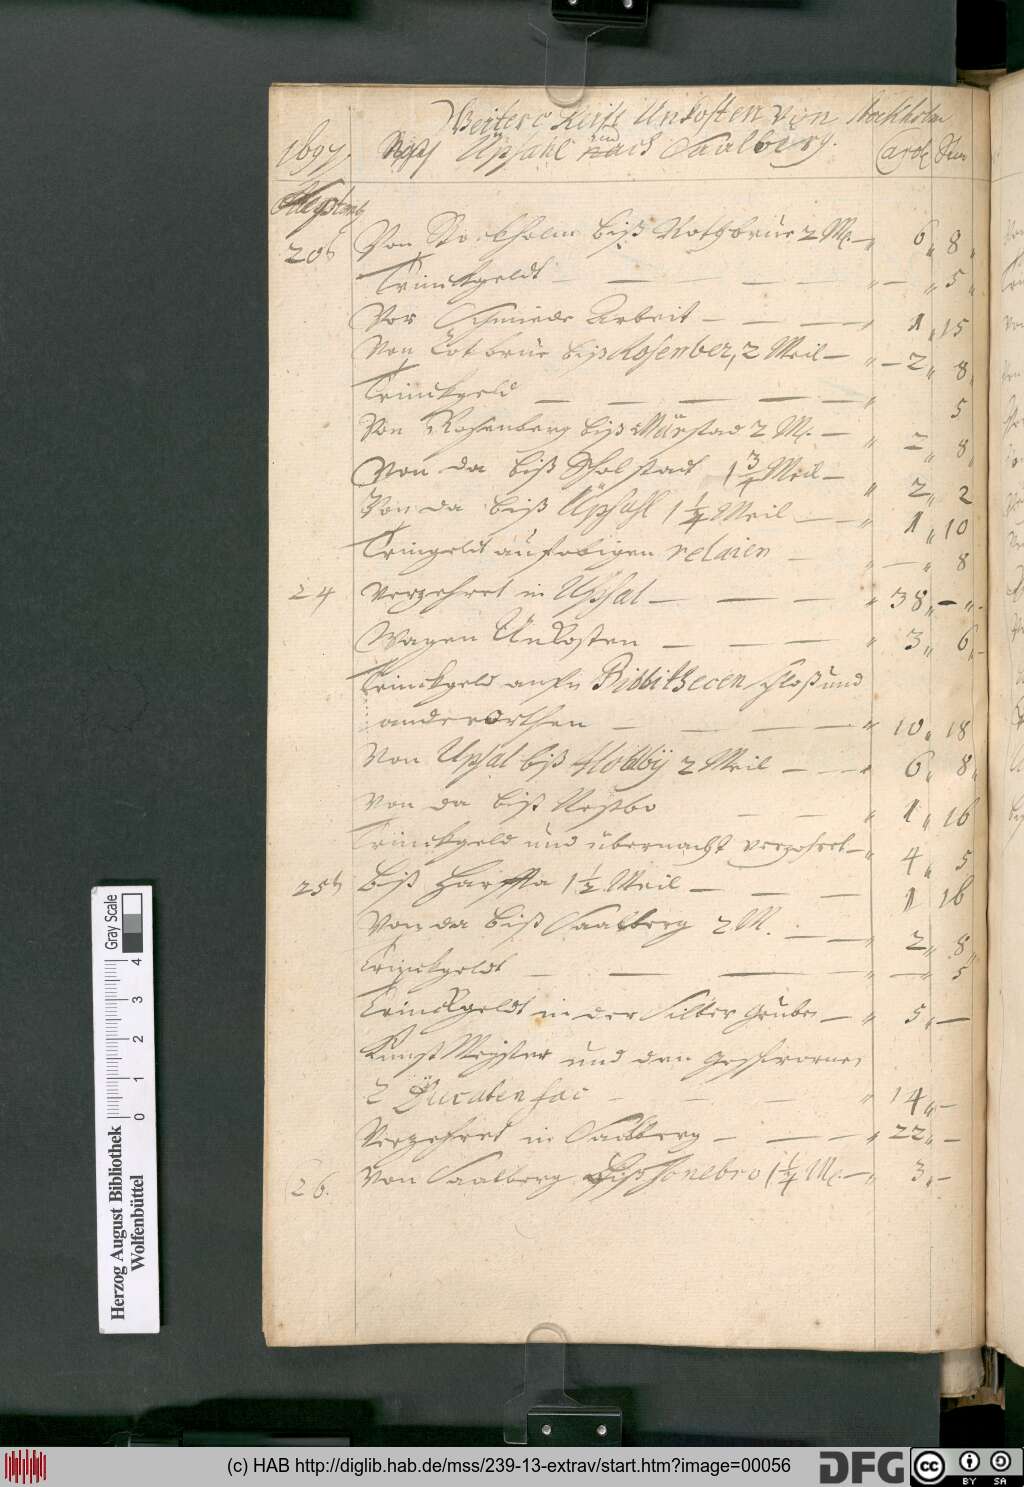 Weitere Reiß Unkosten von Stockholm
1697 nach Upsahl und nach Saalberg. Carol Stür
20t Von Stockholm biß Rothbrüe 2 M. — " 6 " 8 "
Trinckgeldt — — — — " — " 5 "
Vor Schmiede Arbeit — — — " 1 " 15
Von Rotbrüe biß Rosenber, 2 Meil — " — 2 " 8 "
Trinckgeld — — — — — " 5
Von Rosenberg biß Märstad 2 M. — " 2 " 8 "
Von da biß Scholstadt 1 3/4 Meil — " 2 " 2
Von da biß Üpsahl 1 1/4 Meil — " 1 " 10
Tringeldt auf obigen relaien — " — " 8
24 Verzehret in Upsal — — — " 38 " — " —
Wagen Unkosten — — — " 3 " 6 " —
Trinckgeld aufn Bibbithecen Schloß und
anderorthen — — — — " 10 " 18
Von Upsal biß Hobbÿ 2 Meil — — " 6 " 8 "
Von da biß Nestbo " 1 " 16
Trinckgeld und übernacht verzehret — " 4 " 5
25t biß Harffta 1 1/2 Meil — — — 1 16
Von da biß Saalberg 2 M. — — " 2 " 8 "
Trinckgeldt — — — — " — " 5
Trinckgeldt in der Silber Grube — " 5 " —
Kunst Meister und den Geschwornen
2 Ducaten fac — — — " 14 " —
Verzehret in Saalberg — — — " 22 " —
26. Von Saalberg biß Sonebro 1 1/4 M. — " 3 " —
Gray Scale
0 1 2 3 4
Herzog August Bibliothek
Wolfenbüttel
(c) HAB http://diglib.hab.de/mss/239-13-extrav/start.htm?image=00056
DFG
cc BY SA